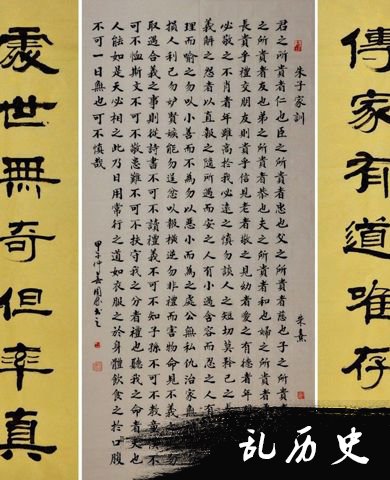 傳家有道唯存
朱子家訓 朱熹
君之所貴者仁也臣之所貴者忠也父之所貴者慈也子之所貴者
之所貴者友也弟之所貴者恭也夫之所貴者和也婦之所貴者
長貴乎禮交朋友貴乎信見老者敬之見幼者愛之有德者年
必敬之不肖者年雖高於我必遠之慎勿談人之短切莫矜己之長
義解之怨者以直報之隨所遇而安之人有小過含容而忍之人有
理而喻之勿以小善而不為勿以惡小而為之處公無私仇治家無
損人利己勿妒賢嫉能勿逞忿以報橫逆勿非禮而害物命見不義之
取遇合義之事則從詩書不可不讀禮義不可不知子孫不可不教童僕不
可不恤斯文不可不敬患難不可不扶守我之分者禮也聽我之命者天也
人能如是天必相之此乃日用常行之道如衣服之於身體飲食之於口腹
不可一日無也可不慎哉
處世無奇但率真
乱历史